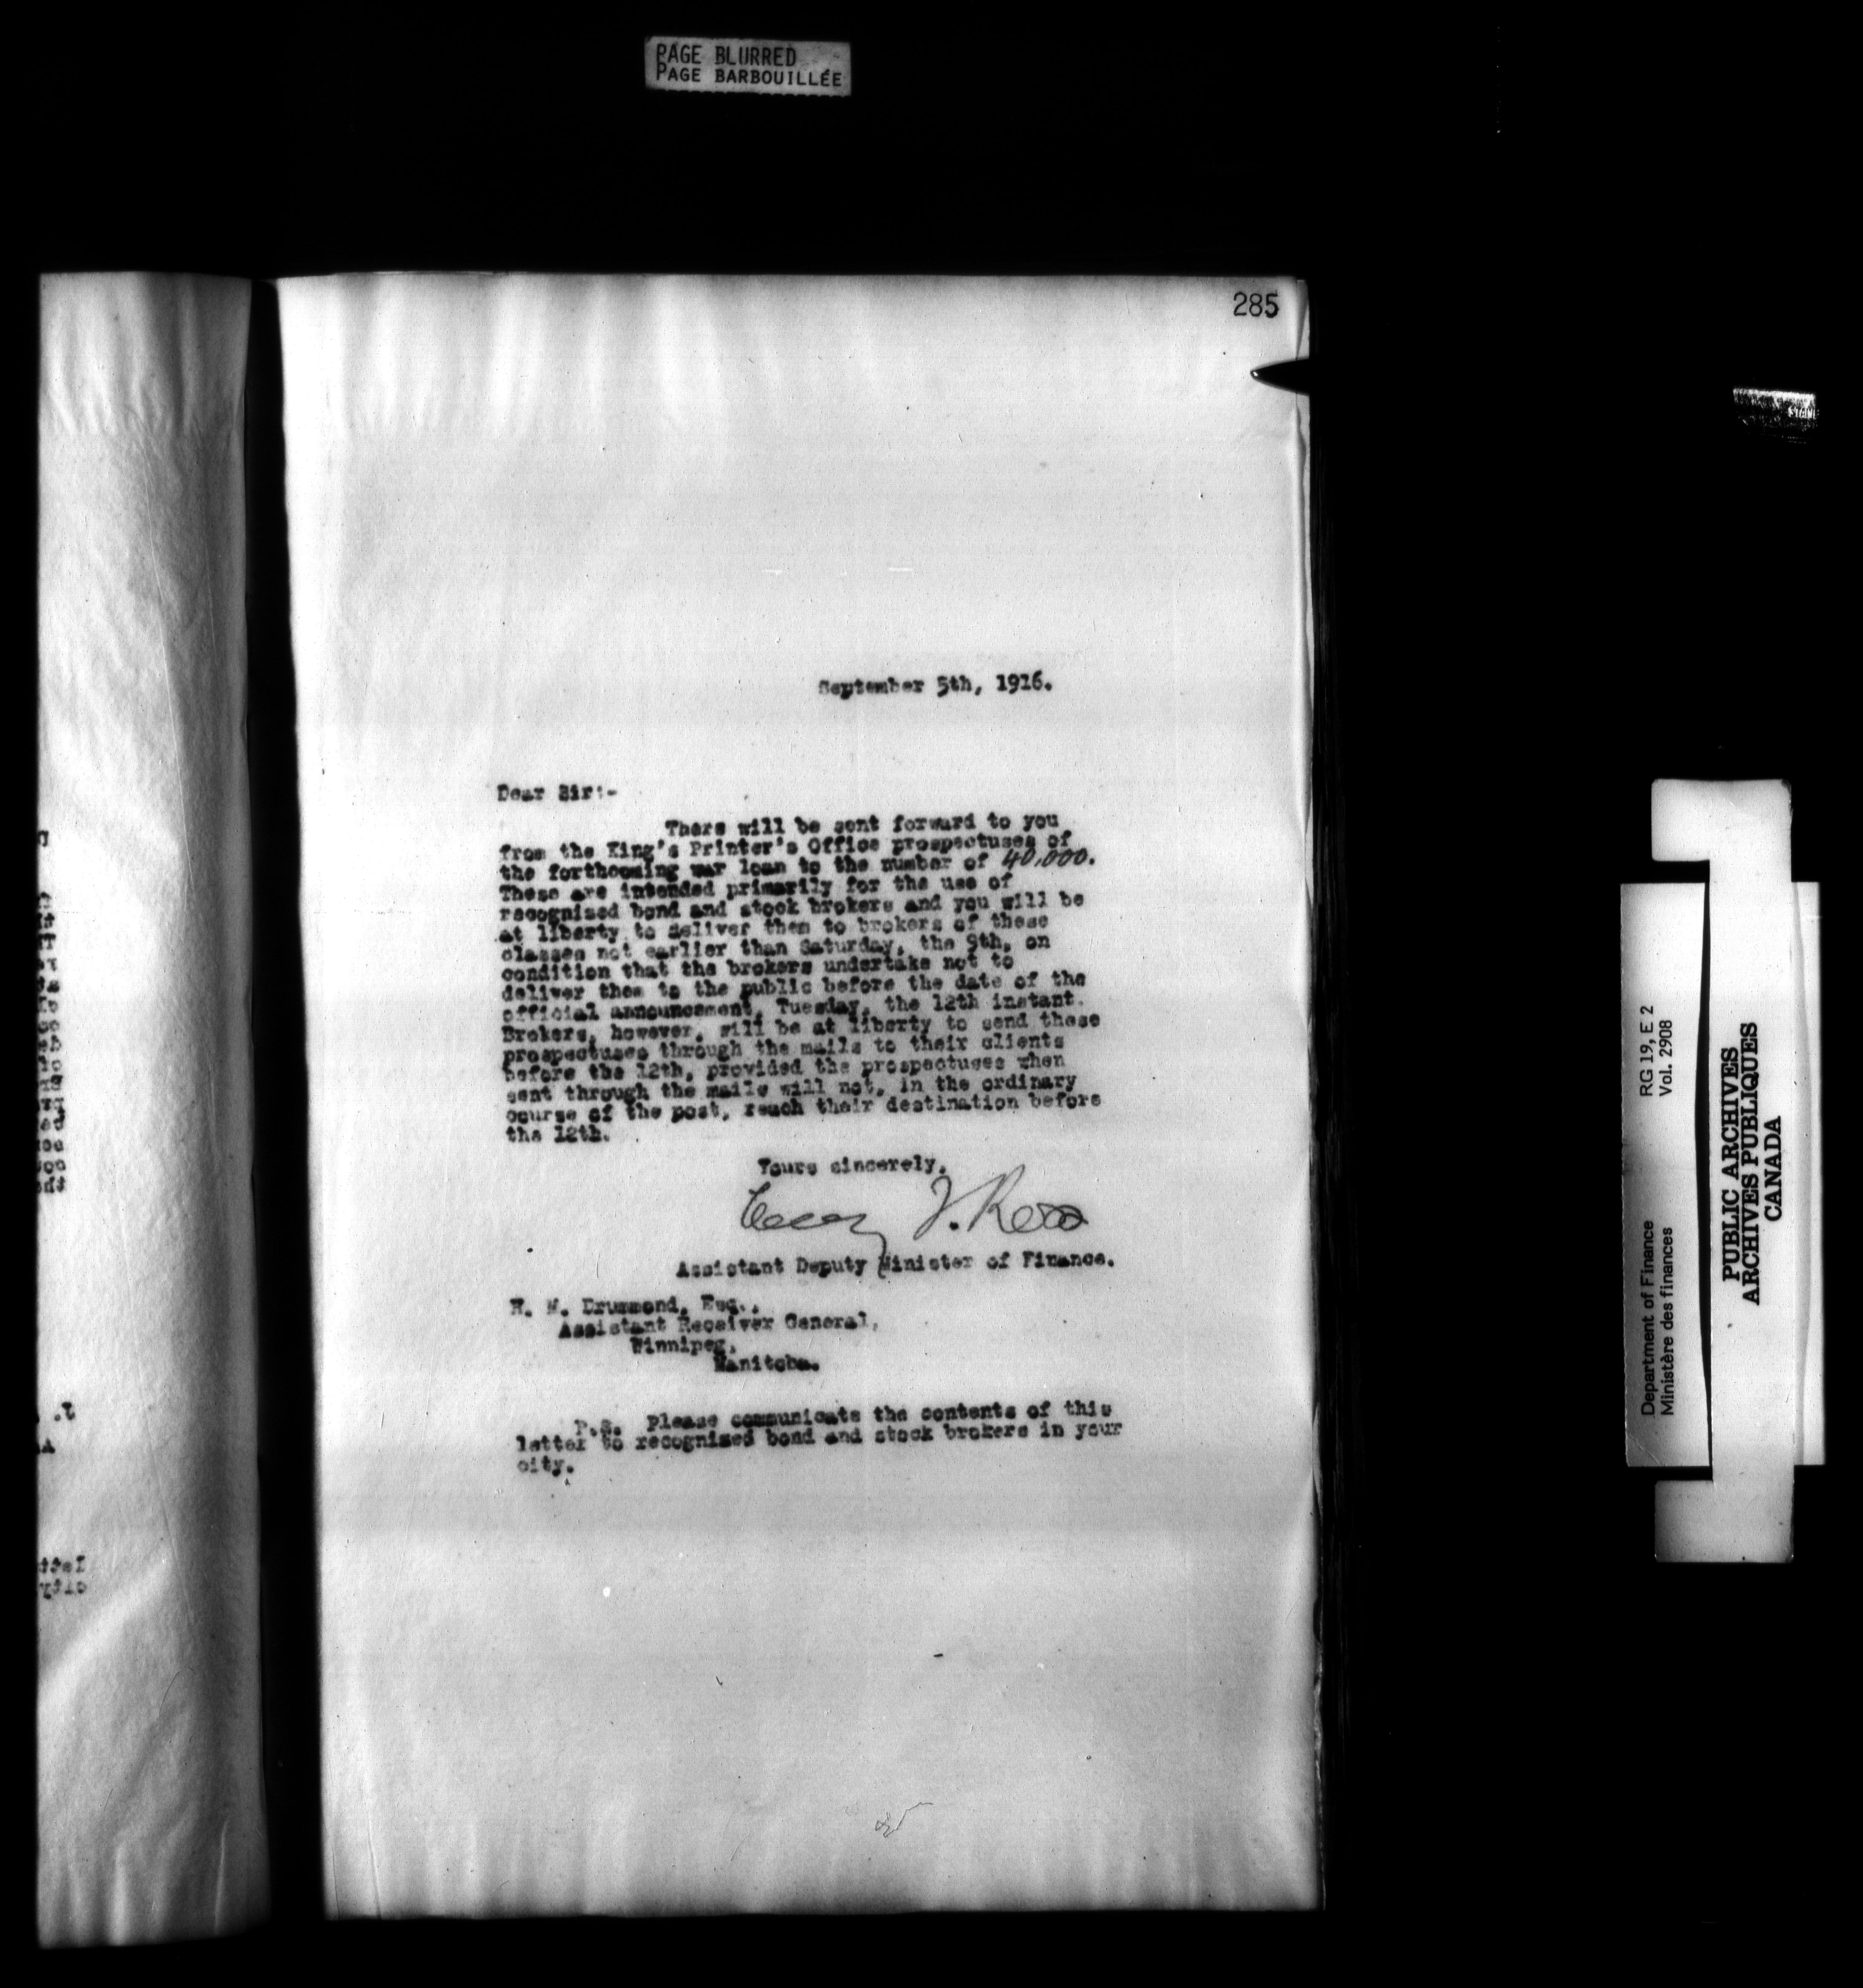 PAGE BLURRED
PAGE BARBOUILLÉE
285
September 5th, 1916.
Dear Sir:-
There will be sent forward to you
from the King's Printer's Office prospectuses of
the forthcoming war loan to the number of 40,000.
These are intended primarily for the use of
recognized bond and stock brokers and you will be
at liberty to deliver them to brokers of these
classes not earlier than Saturday, the 9th, on
condition that the brokers undertake not to
deliver them to the public before the date of the
official announcement, Tuesday, the 12th instant.
Brokers, however, will be at liberty to send these
prospectuses through the mails to their clients
before the 12th, provided the prospectuses when
sent through the mails will not, in the ordinary
course of the post, reach their destination before
the 12th.
Yours sincerely,
Ross
Assistant Deputy Minister of Finance.
H. M. Drummond, Esq.,
Assistant Receiver General,
Winnipeg,
Manitoba.
P.S. Please communicate the contents of this
letter to recognized bond and stock brokers in your
city.
Department of Finance RG 19, E 2
Ministère des finances Vol. 2908
PUBLIC ARCHIVES
ARCHIVES PUBLIQUES
CANADA